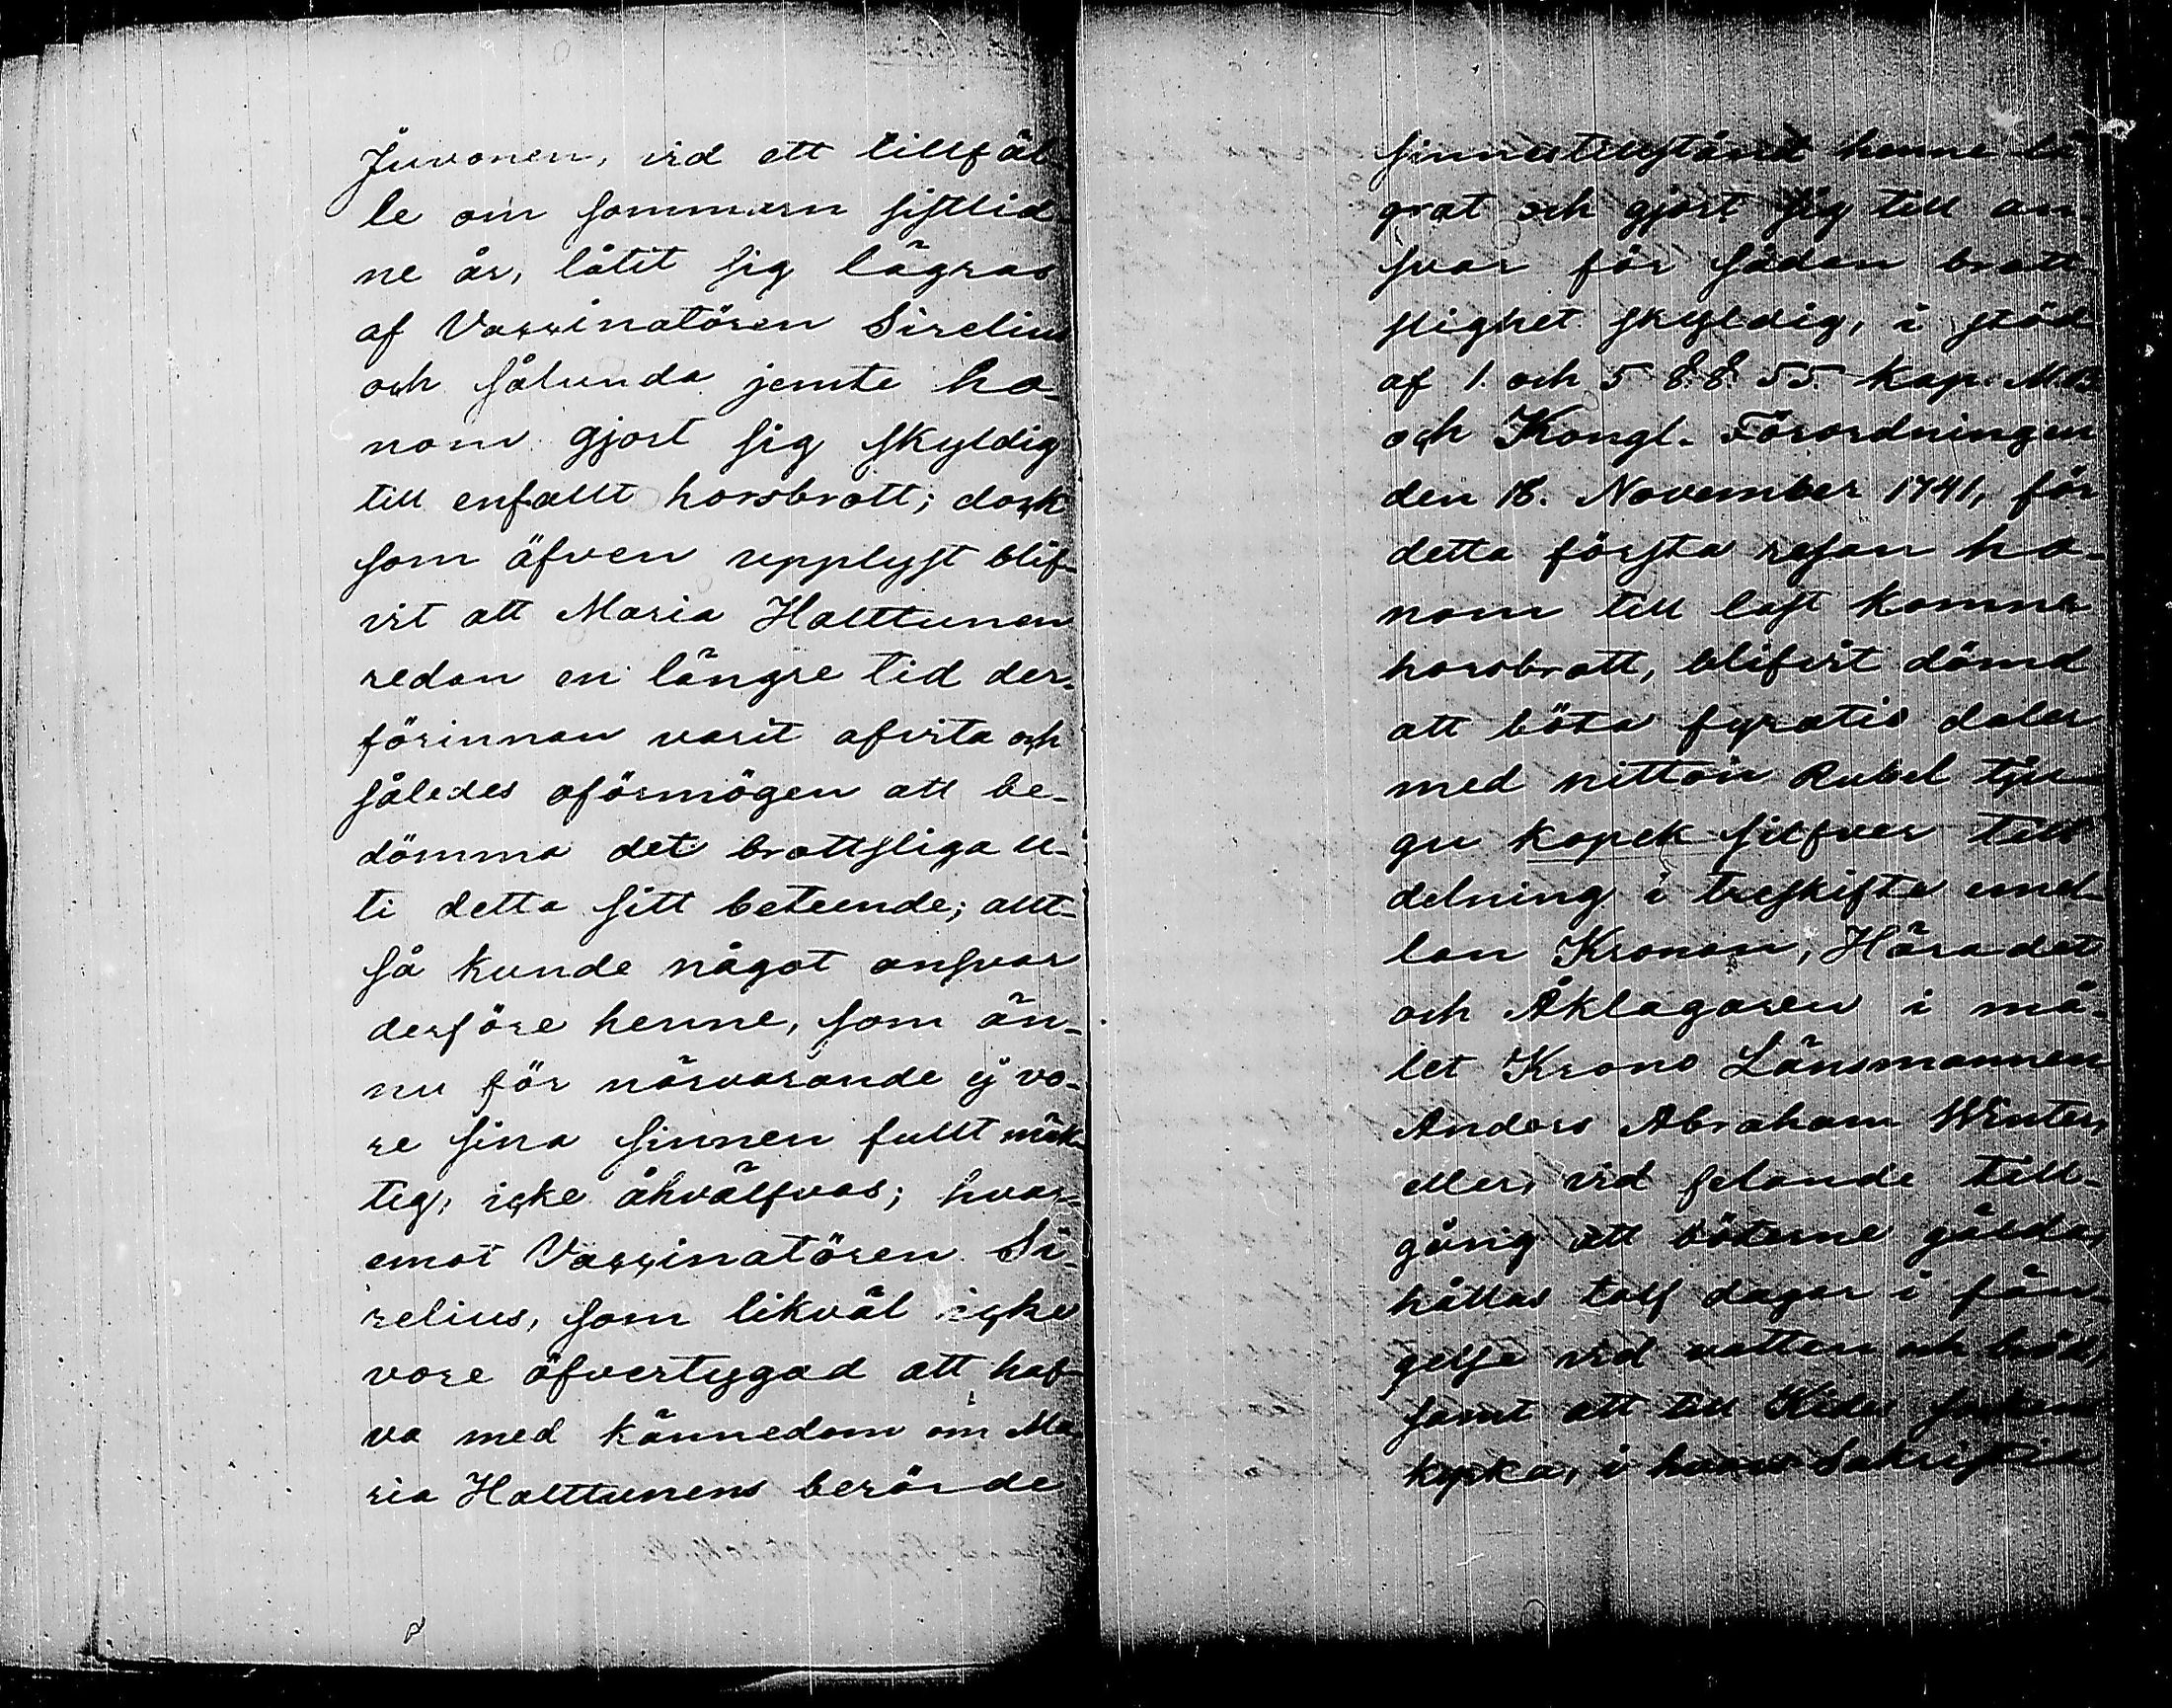 Juvonen, vid ett tillfäl-
le om sommaren sistlid-
ne år, låtit sig lägras
af Vaccinatören Sirelius
och sålunda jemte ho-
nom gjort sig skyldig
till enfallt horsbrott; dock
som äfven upplyst blif-
vit att Maria Halttunen
redan en längre tid der-
förinnan varit afvita och
således oförmögen att be-
döma det brottsliga u-
ti detta sitt beteende; allt-
så kunde något ansvar
derföre henne, som än-
nu för närvarande ej vo-
re sina sinnen fullt mäk-
tig, icke åhvälfvas; hvar-
emot Vaccinatören Si-
relius, som likväl icke
vore öfvertygad att haf-
va med kännedom om Ma-
ria Halttunens berörde
sinnestillstånd henne lä-
grat och gjort sig till an-
svar för sådan brott-
slighet skyldig, i stöd
af 1. och 5 §.§. 55 Kap. M.B.
och Kongl. Förordningen
den 18. November 1741, för
detta första resan ho-
nom till last komne
horsbrott, blifvit dömd
att böta fyratio daler
med nitton Rubel tju-
gu kopek silfver till
delning i treskifte emel-
lan Kronan, Häradet
och Åklagaren i må-
let Krono Länsmannen
Anders Abraham Winter,
eller, vid felande till-
gång att böterne gälda,
hållas tolf dagar i fän-
gelse vid vatten och bröd,
samt att till Kides sockens
kyrka, i hvars Sakristia